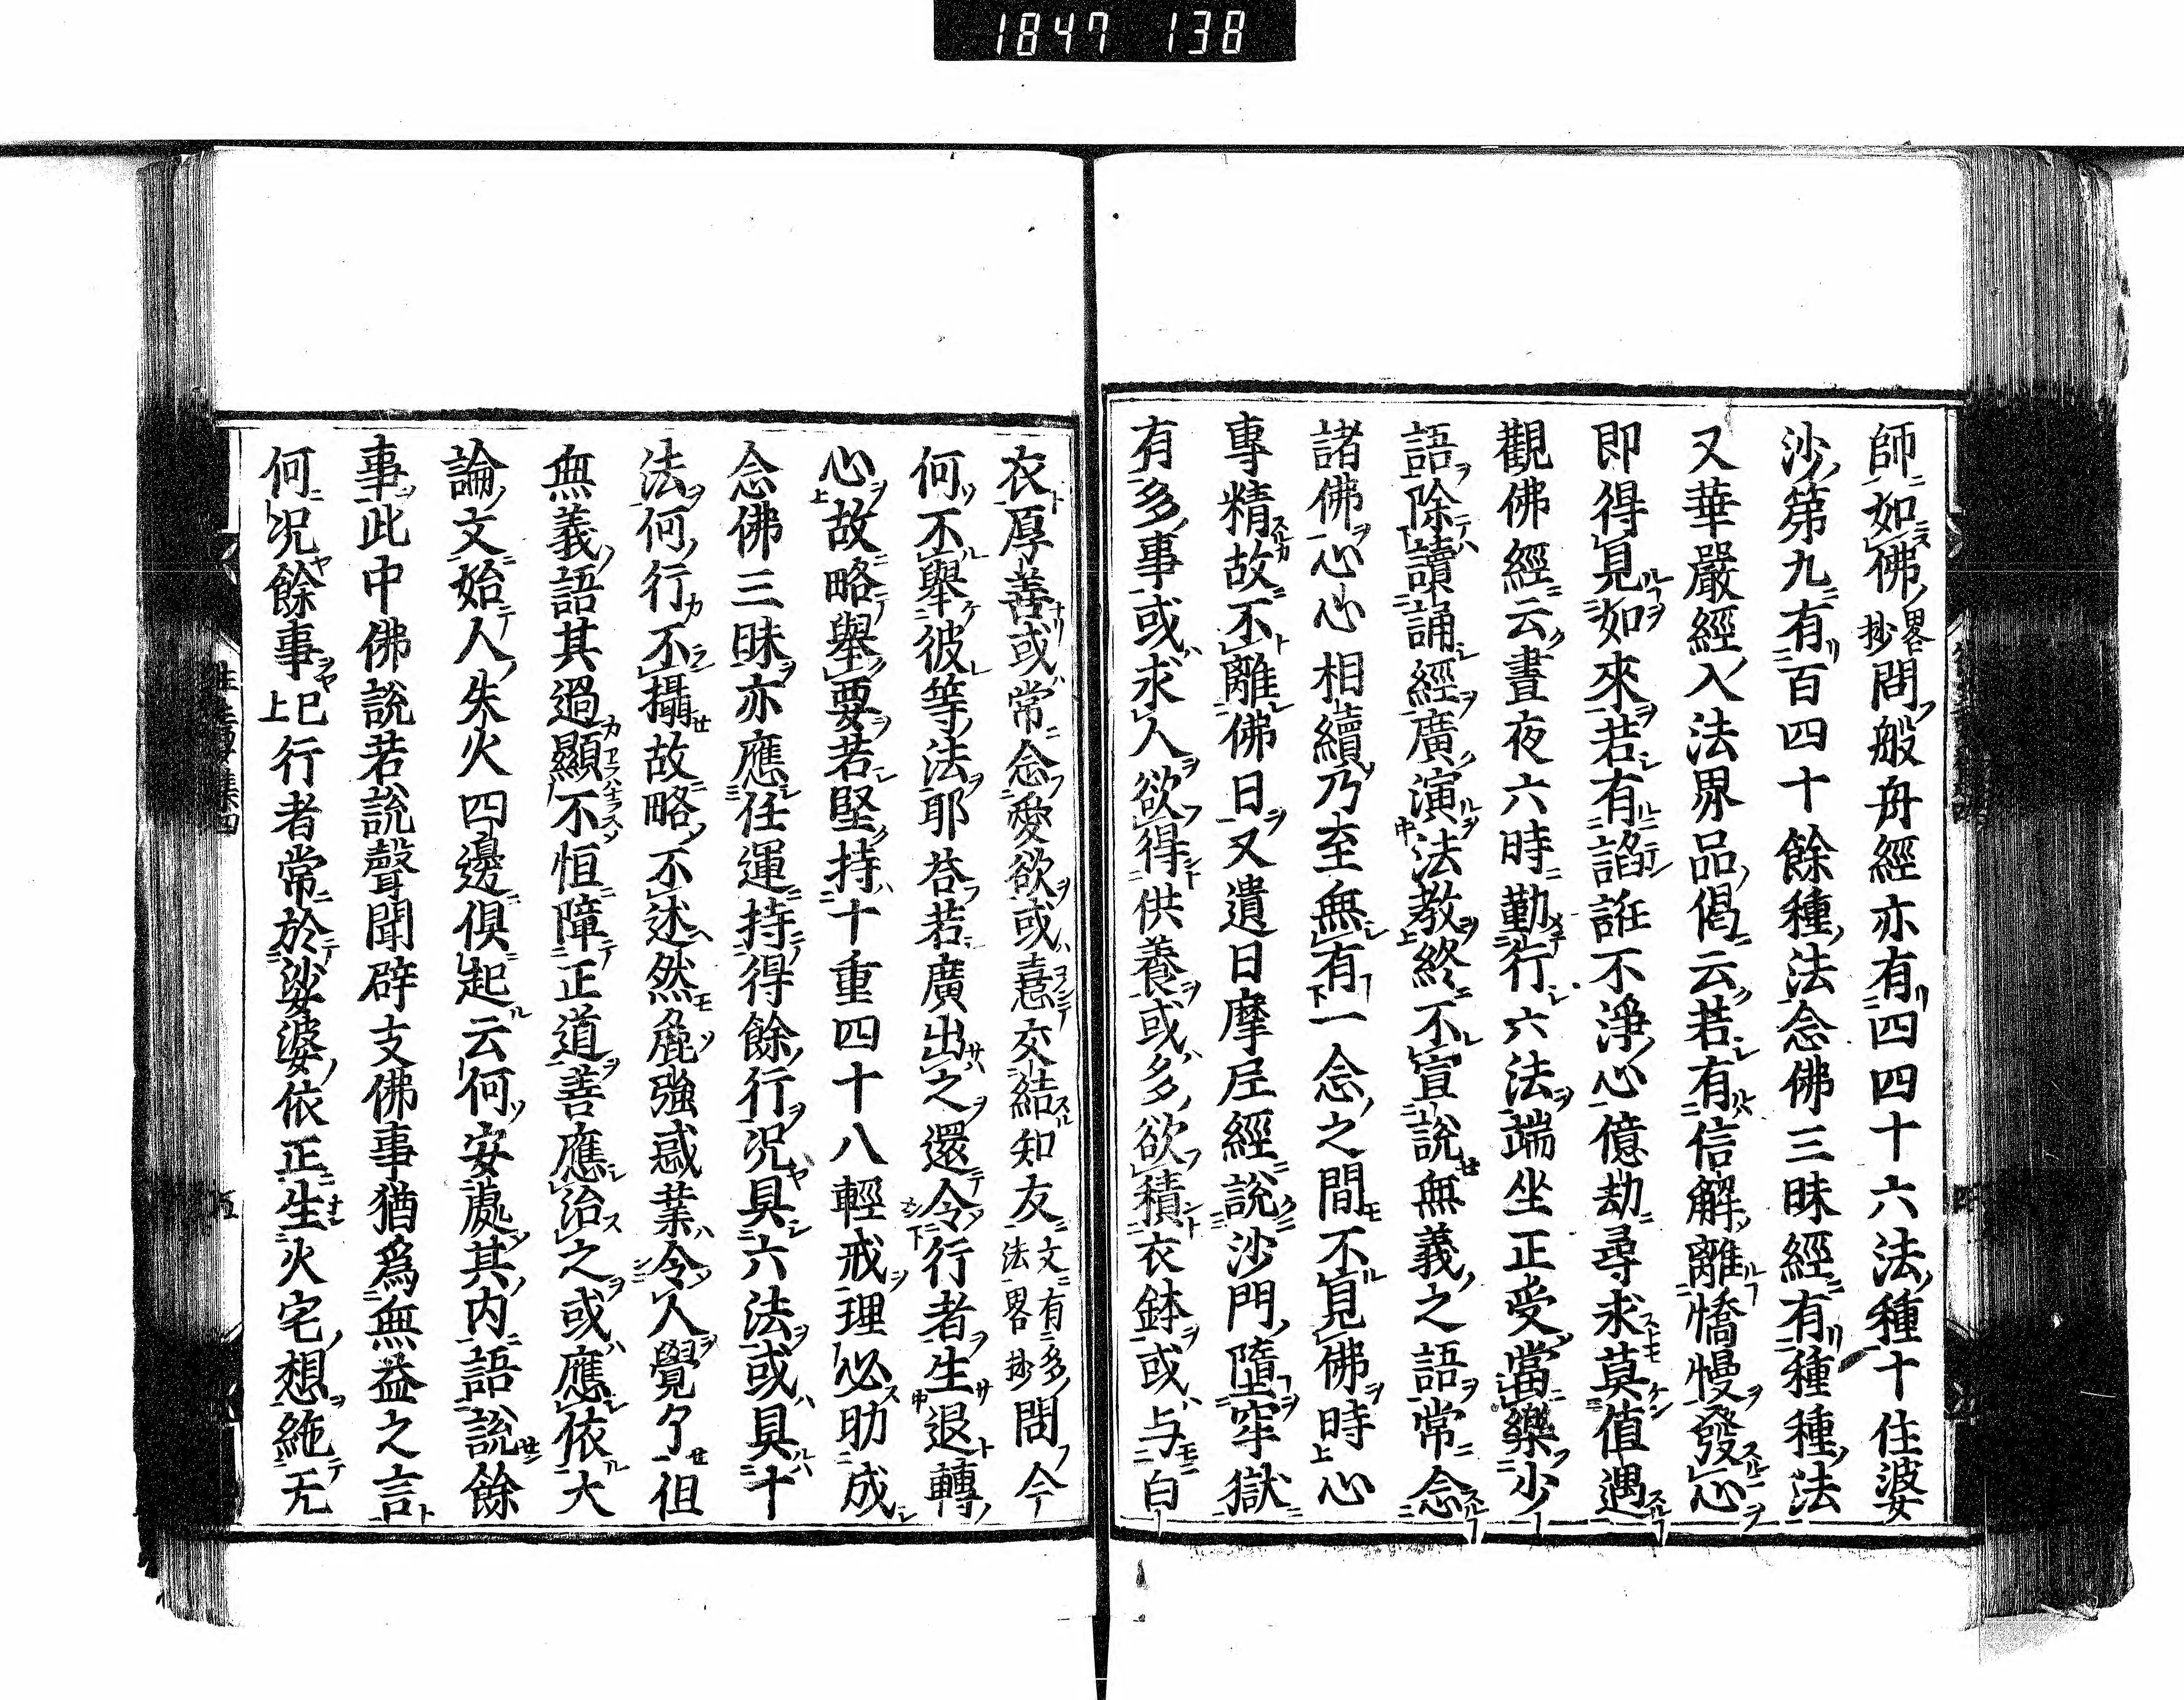 1847 138
師如佛略抄問般舟經亦有四四十六法種十住婆
沙第九有百四十餘種法念佛三昧經有種種法
又華嚴經入法界品偈云若有信解離憍慢發心
即得見如來若有諂誑不淨心億劫尋求莫值遇
觀佛經云晝夜六時勤行六法端坐正受當樂少
語除讀誦經廣演法教終不宣說無義之語常念
諸佛心心相續乃至無有一念之間不見佛時心
專精故不離佛日又遺日摩尼經說沙門墮牢獄
有多事或求人欲得供養或多欲積衣鉢或与白
衣厚善或常念愛欲或憙交結知友文有多法略抄問今
何不舉彼等法耶答若廣出之還令行者生退轉
心故略舉要若堅持十重四十八輕戒理必助成
念佛三昧亦應任運持得餘行況具六法或具十
法何行不攝故略不述然麁強惑業令人覺了但
無義語其過顯不恒障正道善應治之或應依大
論文始人失火四邊俱起云何安處其内語說餘
事此中佛說若說聲聞辟支佛事猶爲無益之言
何況餘事已上行者常於娑婆依正生火宅想絁无